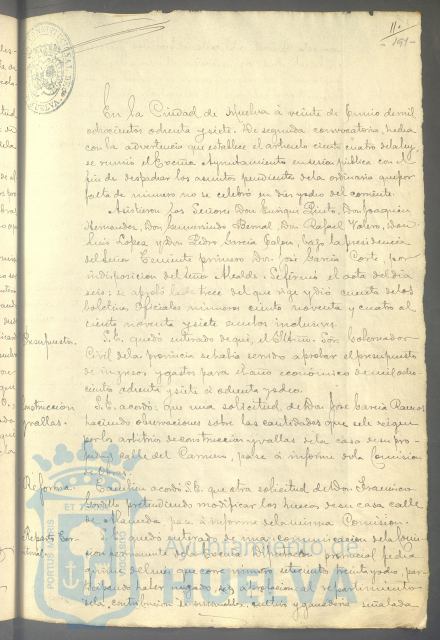 11.
- 191 -
En la Ciudad de Huelva á veinte de Junio de mil
ochocientos ochenta y siete. De segunda convocatoria, hecha
con la advertencia que establece el artículo ciento cuatro de la ley,
se reunió el Excmo Ayuntamiento en sesión pública con el
fin de despachar los asuntos pendientes de la ordinaria que por
falta de número no se celebró en diez y ocho del corriente.
Asistieron los Señores Don Enrique Prieto, Don Joaquín
Hernandez, Don Gumersindo Bernal, Don Rafael Valero, Don
Luis Lopez y Don Pedro García bajo la presidencia
del Señor Teniente primero Don José García Corte, por
indisposicion del Señor Alcalde. Se firmó el acta del día
seis; se aprobó la de trece del que rige y dió cuenta de los
boletines Oficiales números ciento noventa y cuatro al
ciento noventa y siete inclusives.
Presupuestos. S.E. quedó enterado de que el Iltmo. Señor Gobernador
Civil de la provincia se había servido aprobar el presupuesto
de ingresos y gastos para el año económico de mil ocho-
cientos ochenta y siete á ochenta y ocho.
Construccion S.E. acordó: que una solicitud de Don José García Ramos
y vallas. haciendo observaciones sobre las cantidades que se le exigen
por los arbitrios de construccion y vallas de la casa de su pro-
piedad calle del Carmen, pase á informe de la Comision
de Obras.
Reforma. Tambien acordó S.E. que otra solicitud de Don Francisco
pretendiendo modificar los huecos de su casa calle
de Alameda pase á informe de la misma Comision.
Reparto S.E. quedó enterado de una comunicacion de la
permanente de la Excma Diputacion provincial fecha
quince del mes que corre número setecientos treinta y dos par-
ticipando haber negado su aprobacion al repartimiento
de la contribucion de inmuebles, cultivo y ganadería señalada
Ayuntamiento de
HUELVA
PORTUS MARIS
ET